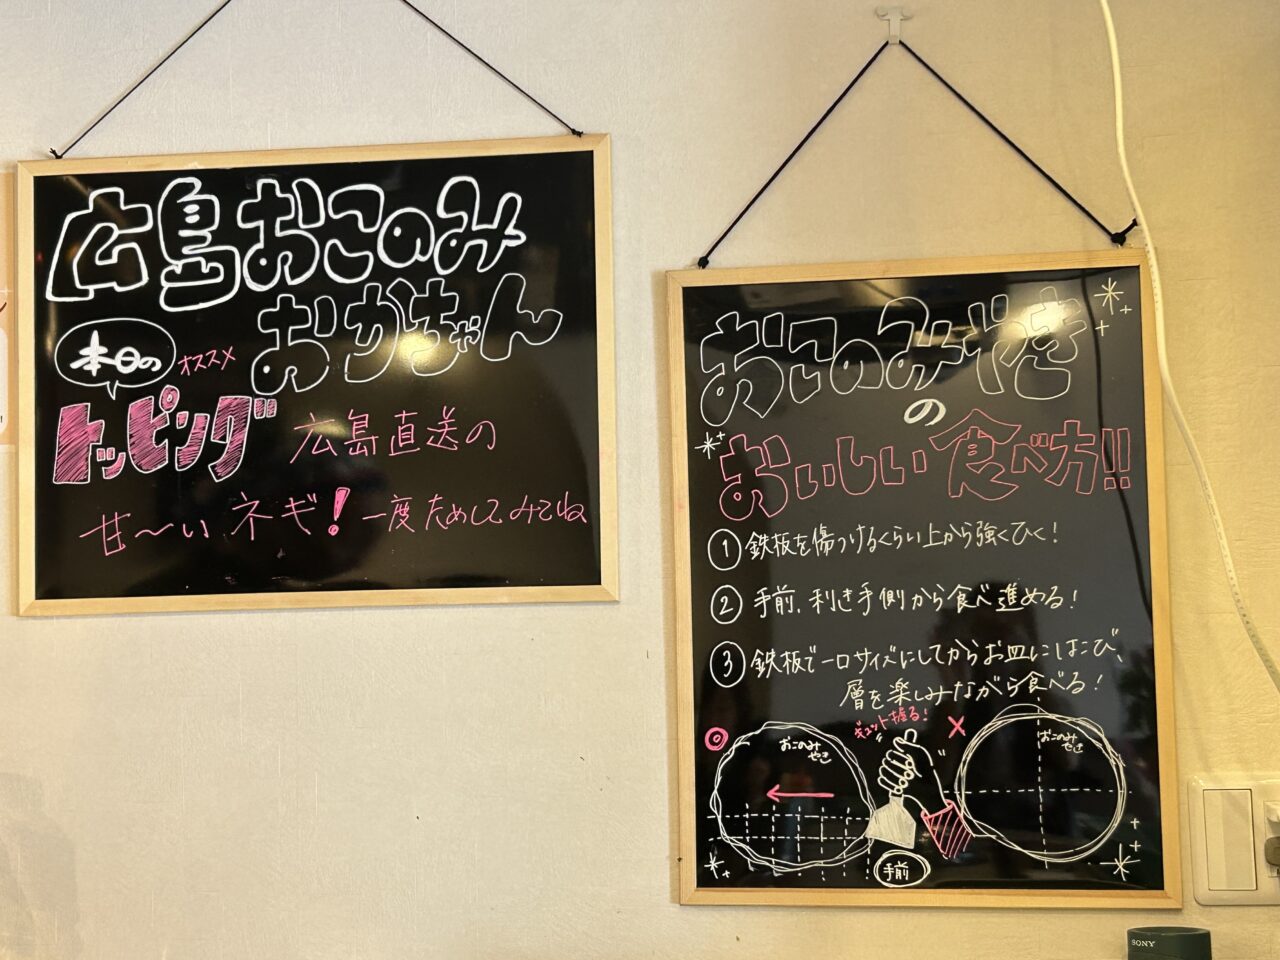 広島おこのみ
おかちゃん
本日の
オススメ
トッピング
広島直送の
甘〜いネギ！一度ためしてみてね
おこのみやき
の
おいしい食べ方!!
① 鉄板を傷つけるくらい上から強くひく！
② 手前、利き手側から食べ進める！
③ 鉄板で一口サイズにしてからお皿にはこび、
層を楽しみながら食べる！
ギュット握る！
◎
おこのみ
やき
×
おこのみ
やき
手前
SONY